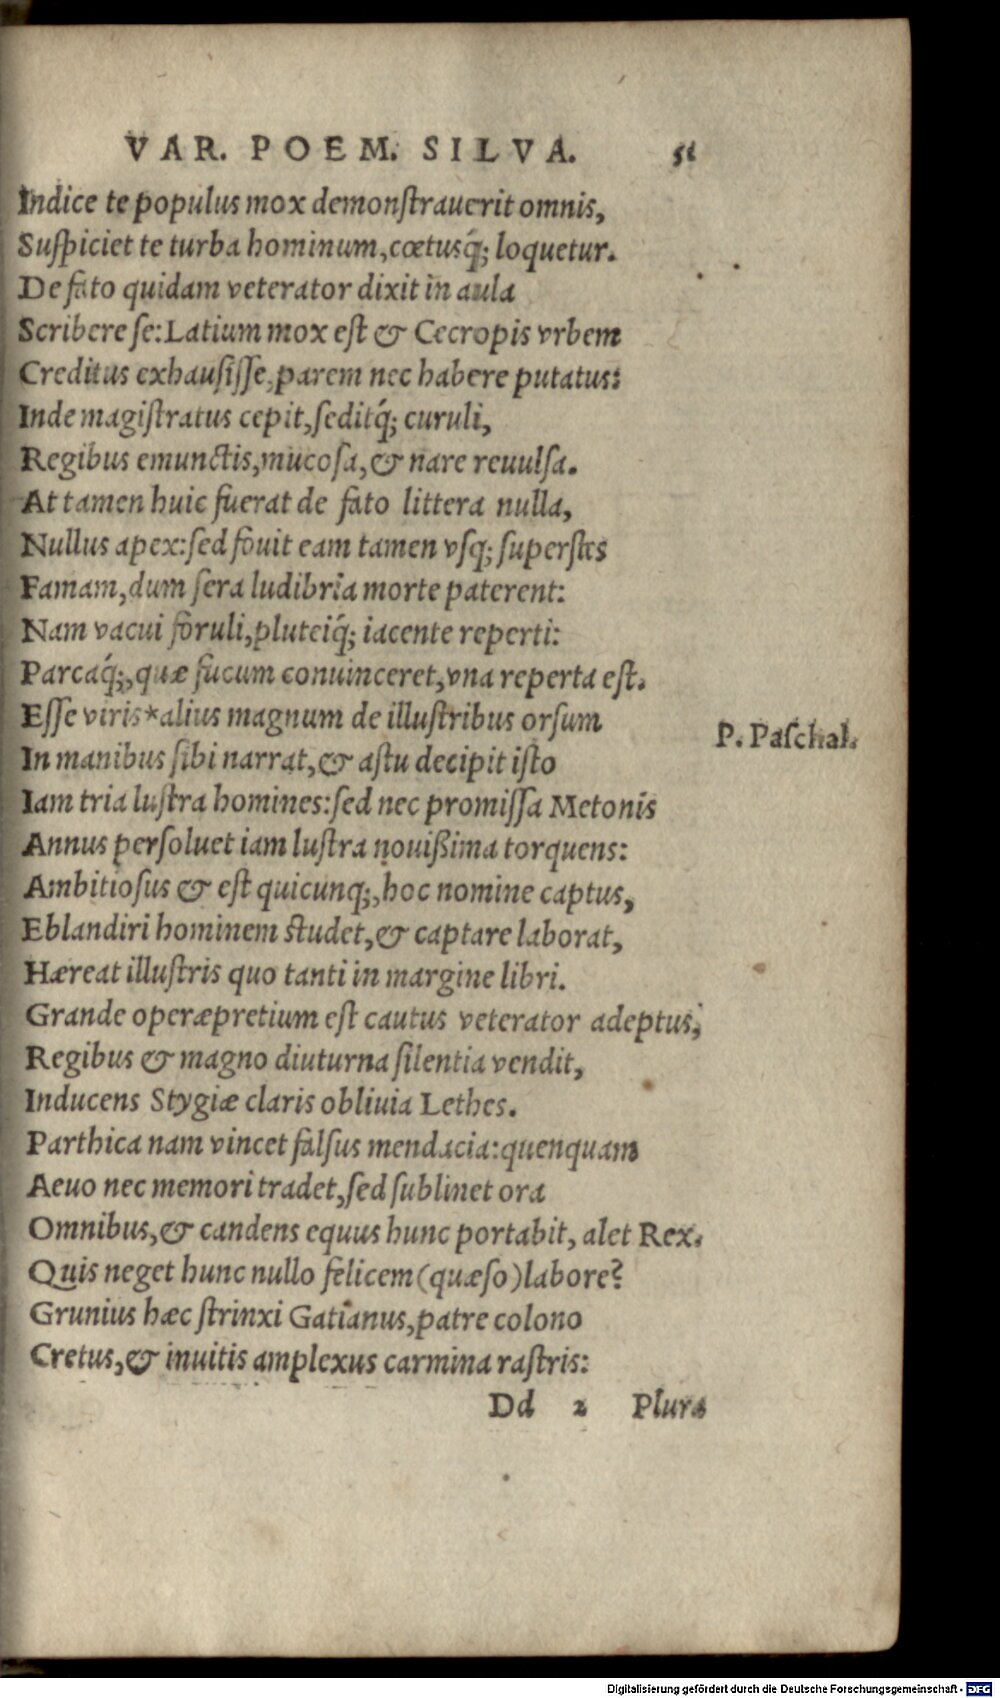 VAR. POEM. SILVA. 51
Indice te populus mox demonſtrauerit omnis,
Suſpiciet te turba hominum, cœtusq́; loquetur.
De fato quidam veterator dixit in aula
Scribere ſe: Latium mox eſt & Cecropis vrbem
Creditus exhauſiſſe, parem nec habere putatus:
Inde magiſtratus cepit, ſeditq́; curuli,
Regibus emunctis, mucoſa, & nare reuulſa.
At tamen huic fuerat de fato littera nulla,
Nullus apex: ſed fouit eam tamen vſq; ſuperſtes
Famam, dum ſera ludibria morte paterent:
Nam vacui foruli, pluteiq́; iacente reperti:
Parcaq́;, quæ fucum conuinceret, vna reperta eſt.
Eſſe viris*alius magnum de illuſtribus orſum
P. Paſchal.
In manibus ſibi narrat, & aſtu decipit iſto
Iam tria luſtra homines: ſed nec promiſſa Metonis
Annus perſoluet iam luſtra nouißima torquens:
Ambitioſus & eſt quicunq;, hoc nomine captus,
Eblandiri hominem ſtudet, & captare laborat,
Hæreat illuſtris quo tanti in margine libri.
Grande operæpretium eſt cautus veterator adeptus,
Regibus & magno diuturna ſilentia vendit,
Inducens Stygiæ claris obliuia Lethes.
Parthica nam vincet falſus mendacia: quenquam
Aeuo nec memori tradet, ſed ſublinet ora
Omnibus, & candens equus hunc portabit, alet Rex.
Quis neget hunc nullo felicem (quæſo) labore?
Grunius hæc ſtrinxi Gatianus, patre colono
Cretus, & inuitis amplexus carmina raſtris:
Dd 2 Plura
Digitalisierung gefördert durch die Deutsche Forschungsgemeinschaft - DFG